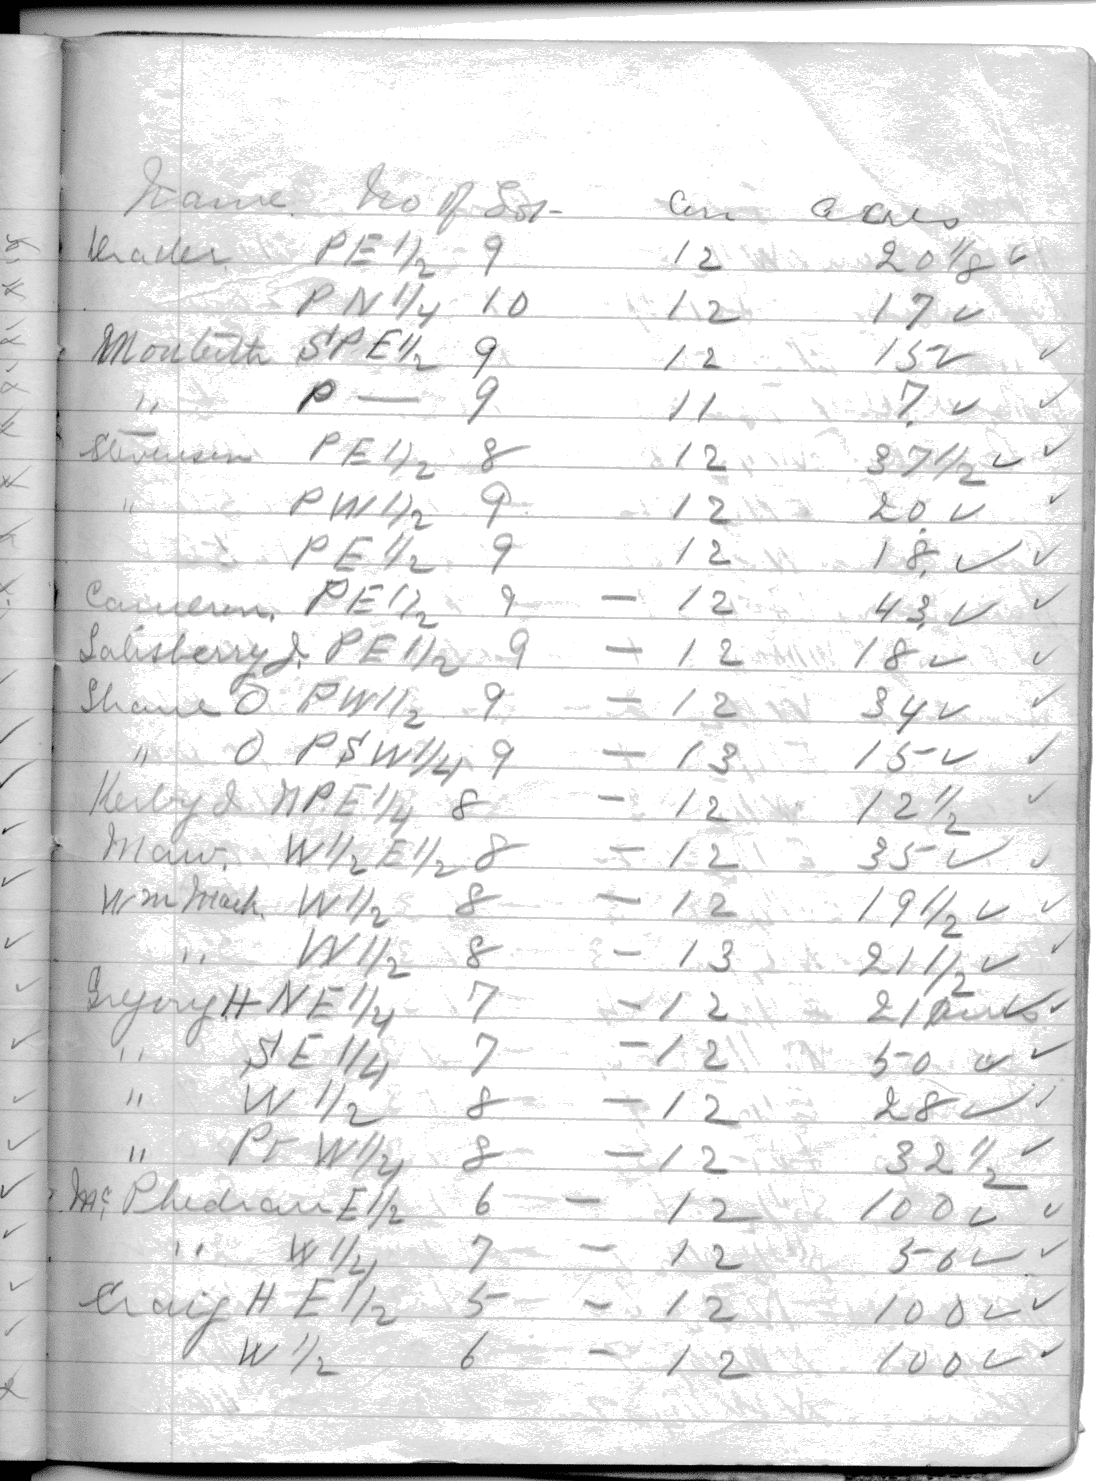 Name No of Lot Con acres
Krader PE 1/2 9 12 20 1/8 ✓
PN 1/4 10 12 17 ✓
Monteith SPE 1/2 9 12 15 ✓ ✓
" P — 9 11 7 ✓ ✓
Stevenson PE 1/2 8 12 37 1/2 ✓ ✓
" PW 1/2 9 - 12 20 ✓ ✓
PE 1/2 9 12 18 ✓ ✓
Cameron. PE 1/2 9 — 12 43 ✓ ✓
Salisberry J. PE 1/2 9 — 12 18 ✓ ✓
Shane O PW 1/2 9 — 12 34 ✓ ✓
" O PSW 1/4 9 — 13 15 ✓ ✓
Kerby J NPE 1/4 8 — 12 12 1/2 ✓
Maw. W 1/2 E 1/2 8 — 12 35 ✓ ✓
Wm W 1/2 8 — 12 19 1/2 ✓ ✓
" W 1/2 8 — 13 21 1/2 ✓ ✓
Gregory H NE 1/4 7 — 12 21 acres ✓
" SE 1/4 7 — 12 50 ✓ ✓
" W 1/2 8 — 12 28 ✓ ✓
" Pt W 1/4 8 — 12 32 1/2 ✓
Mc Phedran E 1/2 6 — 12 100 ✓ ✓
" W 1/4 7 — 12 50 ✓ ✓
Craig H E 1/2 5 — 12 100 ✓ ✓
W 1/2 6 — 12 100 ✓ ✓